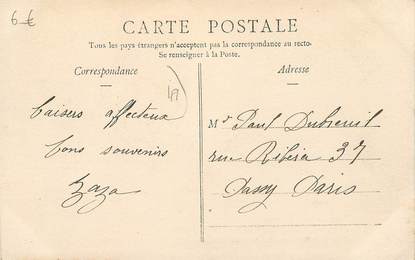 6 €
CARTE POSTALE
Tous les pays étrangers n'acceptent pas la correspondance au recto-
Se renseigner à la Poste.
Correspondance
Baisers affectueux
bons souvenirs
Zaza
Adresse
Mr Paul Dubreuil
rue Ribéra 37
Passy Paris